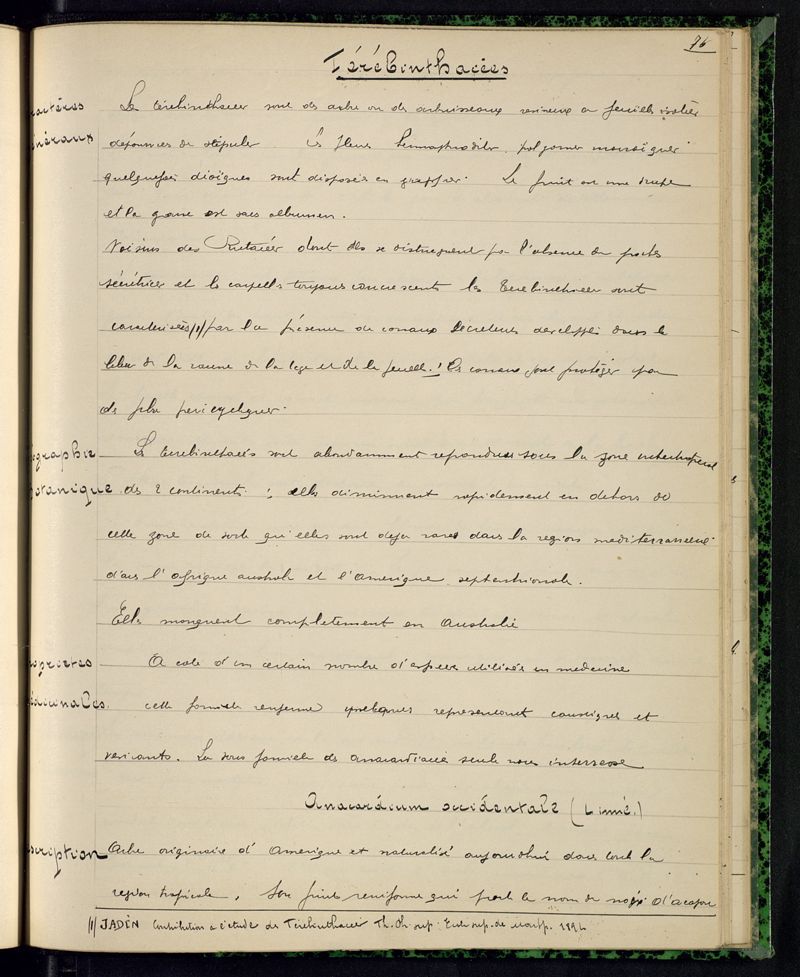 76
Térébinthacées
Les térébinthacées sont des arbres ou des arbrisseaux resineux a feuilles isolées
dépourvues de stipules. Les fleurs hermaphrodites, polygames monoïques
quelquefois dioïques sont disposées en grappes. Le fruit est une drupe
et la graine est sans albumen.
Voisins des Rutacées dont elles se distinguent par l'absence de poches
sécrétrices et les carpelles toujours concrescents les Terebinthacees sont
caracterisées (1) par la présence de canaux secreteurs developpés dans le
liber de la racine de la tige et de la feuille. Ces canaux sont protégés par
des fibres pericycliques.
Les terebinthacées sont abondamment repandues sous la zone intertropicale
des 2 continents ; elles diminuent rapidement en dehors de
cette zone de sorte qu'elles sont deja rares dans la region mediterraneenne
dans l'afrique australe et l'amerique septentrionale.
Elles manquent completement en Australie
A cote d'un certain nombre d'especes utilisées en medecine
cette famille renferme quelques representants caustiques et
vesicants. La sous famille des anacardiacées seule nous interesse
Anacardium occidentale (Linné.)
Arbre originaire d'Amerique et naturalisé aujourdhui dans toute la
region tropicale. Son fruit reniforme qui porte le nom de noix d'acajou
(1) JADIN Contribution a l'étude des Térébinthacées Th. Ph. sup. Ecole sup. de Montp. 1894
ractères
néraux
ographie
otanique
oprietes
édicinales.
scription